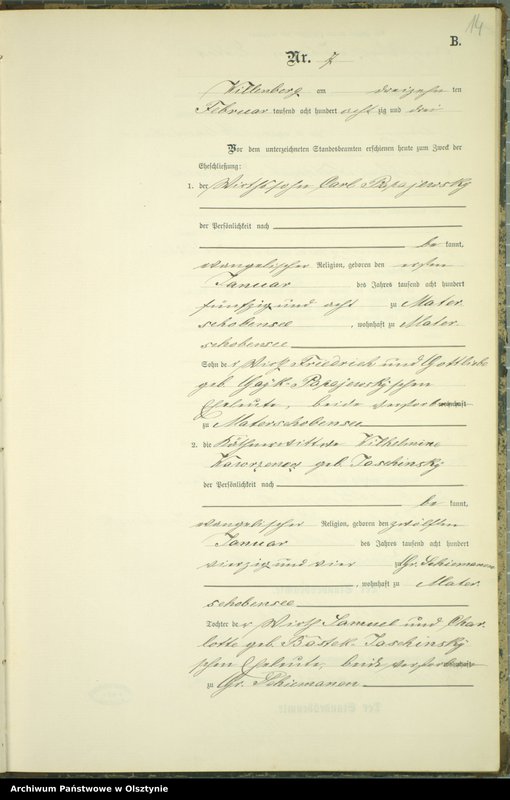 14
B.
Nr. 7
Willenberg am dreizehn ten
Februar tausend acht hundert acht zig und drei
Vor dem unterzeichneten Standesbeamten erschienen heute zum Zweck der
Eheschließung:
1. der Wirthssohn Carl
der Persönlichkeit nach
be kannt,
evangelischer Religion, geboren den ersten
Januar des Jahres tausend acht hundert
fünfzig und acht zu Mater
schobensee, wohnhaft zu Mater
schobensee
Sohn der Wirth Friedrich und Gottliebe
geb. schen
Eheleute, beide verstorben wohnhaft
zu Materschobensee
2. die Käthnerwittwe Wilhelmine
geb. Jaschinsky
der Persönlichkeit nach
be kannt,
evangelischer Religion, geboren den zwölften
Januar des Jahres tausend acht hundert
vierzig und vier zu Gr. Schiemanen
, wohnhaft zu Mater
schobensee
Tochter der Wirth Samuel und Char
lotte geb. Bastek Jaschinsky
schen Eheleute, beide verstorben wohnhaft
zu Gr. Schiemanen
Archiwum Państwowe w Olsztynie